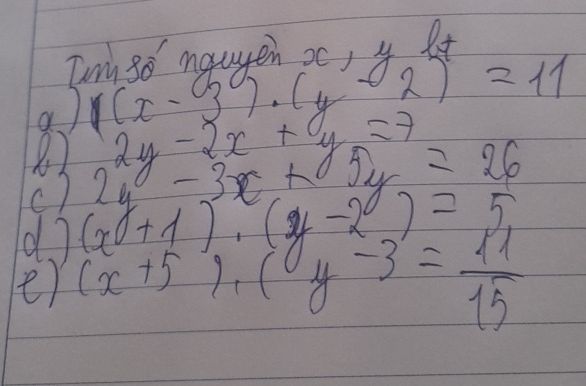 Tìm số nguyên x, y bt
a) (x - 3).(y - 2) = 11
b) 2y - 2x + y = 7
c) 2y - 3x + 5y = 26
d) (x + 1).(y - 2) = 5
e) (x + 5).(y - 3 = 11/15